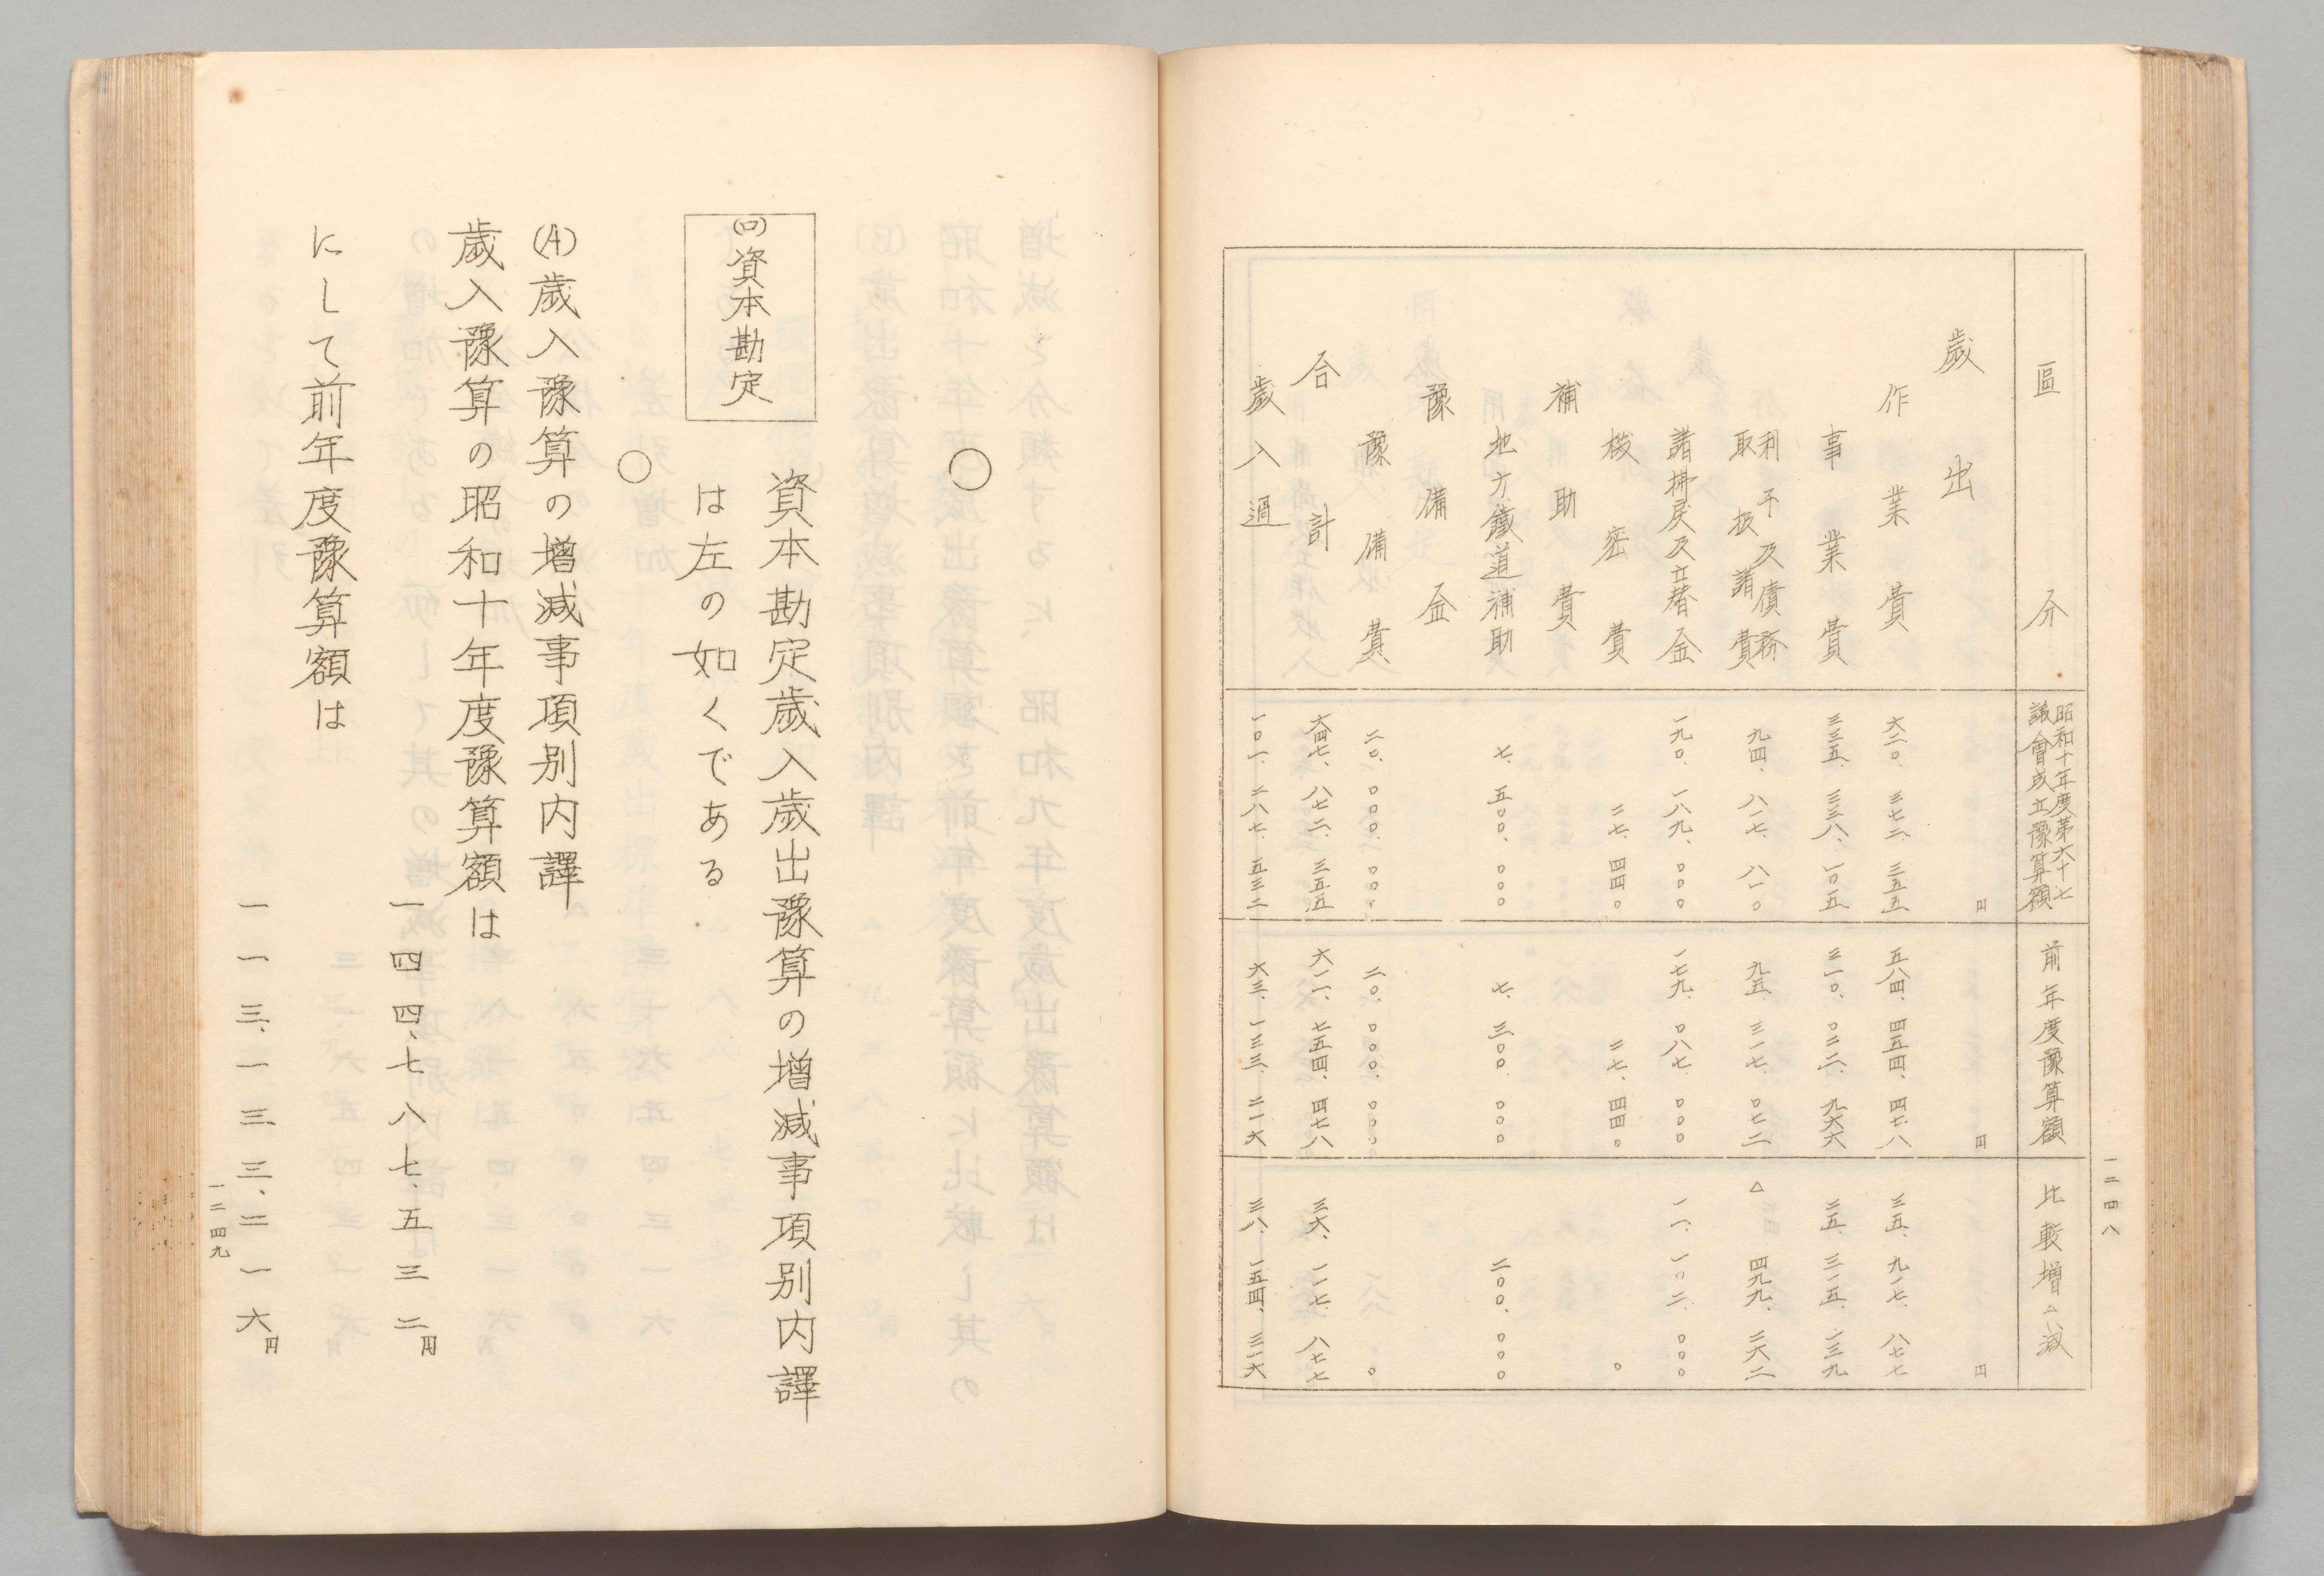 一二四八
區分 昭和十年度第六十七議會成立豫算額 前年度豫算額 比較増△減
歳出 円 円 円
作業費 六二〇、三七二、三五五 五八四、四五四、四七八 三五、九一七、八七七
事業費 三三五、三三八、一〇五 三一〇、〇二二、九六六 二五、三一五、一三九
利子及債務取扱諸費 九四、八一七、八一〇 九五、三一七、〇七二 △ 四九九、二六二
諸拂戻及立替金 一九〇、一八九、〇〇〇 一七九、〇八七、〇〇〇 一一、一〇二、〇〇〇
機密費 二七、四四〇 二七、四四〇 〇
補助費
地方鐵道補助 七、五〇〇、〇〇〇 七、三〇〇、〇〇〇 二〇〇、〇〇〇
豫備金
豫備費 二〇、〇〇〇、〇〇〇 二〇、〇〇〇、〇〇〇 〇
合計 六四七、八七二、三五五 六一一、七五四、四七八 三六、一一七、八七七
歳入過 一〇一、二八七、五三二 六三、一三三、二一六 三八、一五四、三一六
〇
資本勘定歳入歳出豫算の増減事項別内譯
(ロ)資本勘定
は左の如くである
〇
(A)歳入豫算の増減事項別内譯
歳入豫算の昭和十年度豫算額は
一四四、七八七、五三二円
にして前年度豫算額は
一一三、一三三、二一六円
一二四九